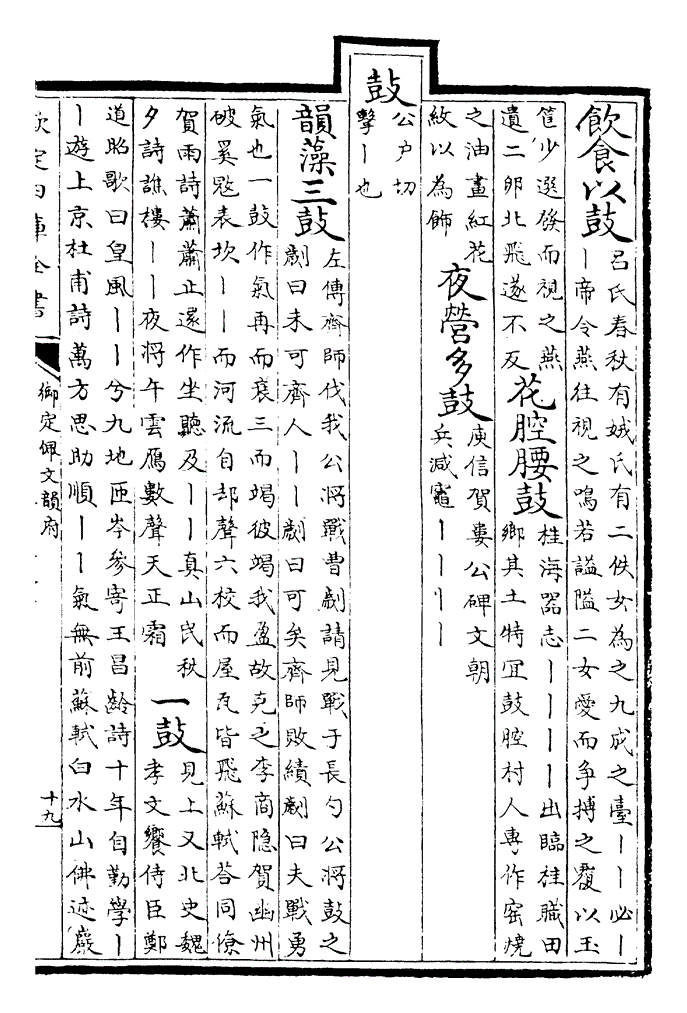 飲食以鼓
呂氏春秋有娀氏有二佚女為之九成之臺丨丨必丨
丨帝令燕往視之鳴若謚隘二女愛而争搏之覆以玉
筐少選發而視之燕
遺二卵北飛遂不反
花腔腰鼓
桂海器志丨丨丨丨出臨桂職田
鄉其土特冝鼓腔村人専作窑燒
之油畫紅花
紋以為飾
夜營多鼓
庾信賀婁公碑文朝
兵減竈丨丨丨丨
鼓
公户切
擊丨也
韻藻三鼓
左傳齊師伐我公將戰曹劌請見戰于長勺公將鼓之
劌曰未可齊人丨丨劌曰可矣齊師敗績劌曰夫戰勇
氣也一鼓作氣再而衰三而竭彼竭我盈故克之李商隠賀幽州
破奚冦表坎丨丨而河流自却聲六校而屋瓦皆飛蘇軾荅同僚
賀雨詩蕭蕭止還作坐聽及丨丨真山民秋
夕詩譙樓丨丨夜将午雲鴈數聲天正霜
一鼓
見上又北史魏
孝文饗侍臣鄭
道昭歌曰皇風丨丨兮九地匝岑參寄王昌齡詩十年自勤學丨
丨遊上京杜甫詩萬方思助順丨丨氣無前蘇軾白水山佛迹巖
欽定四庫全書
御定佩文韻府
十九